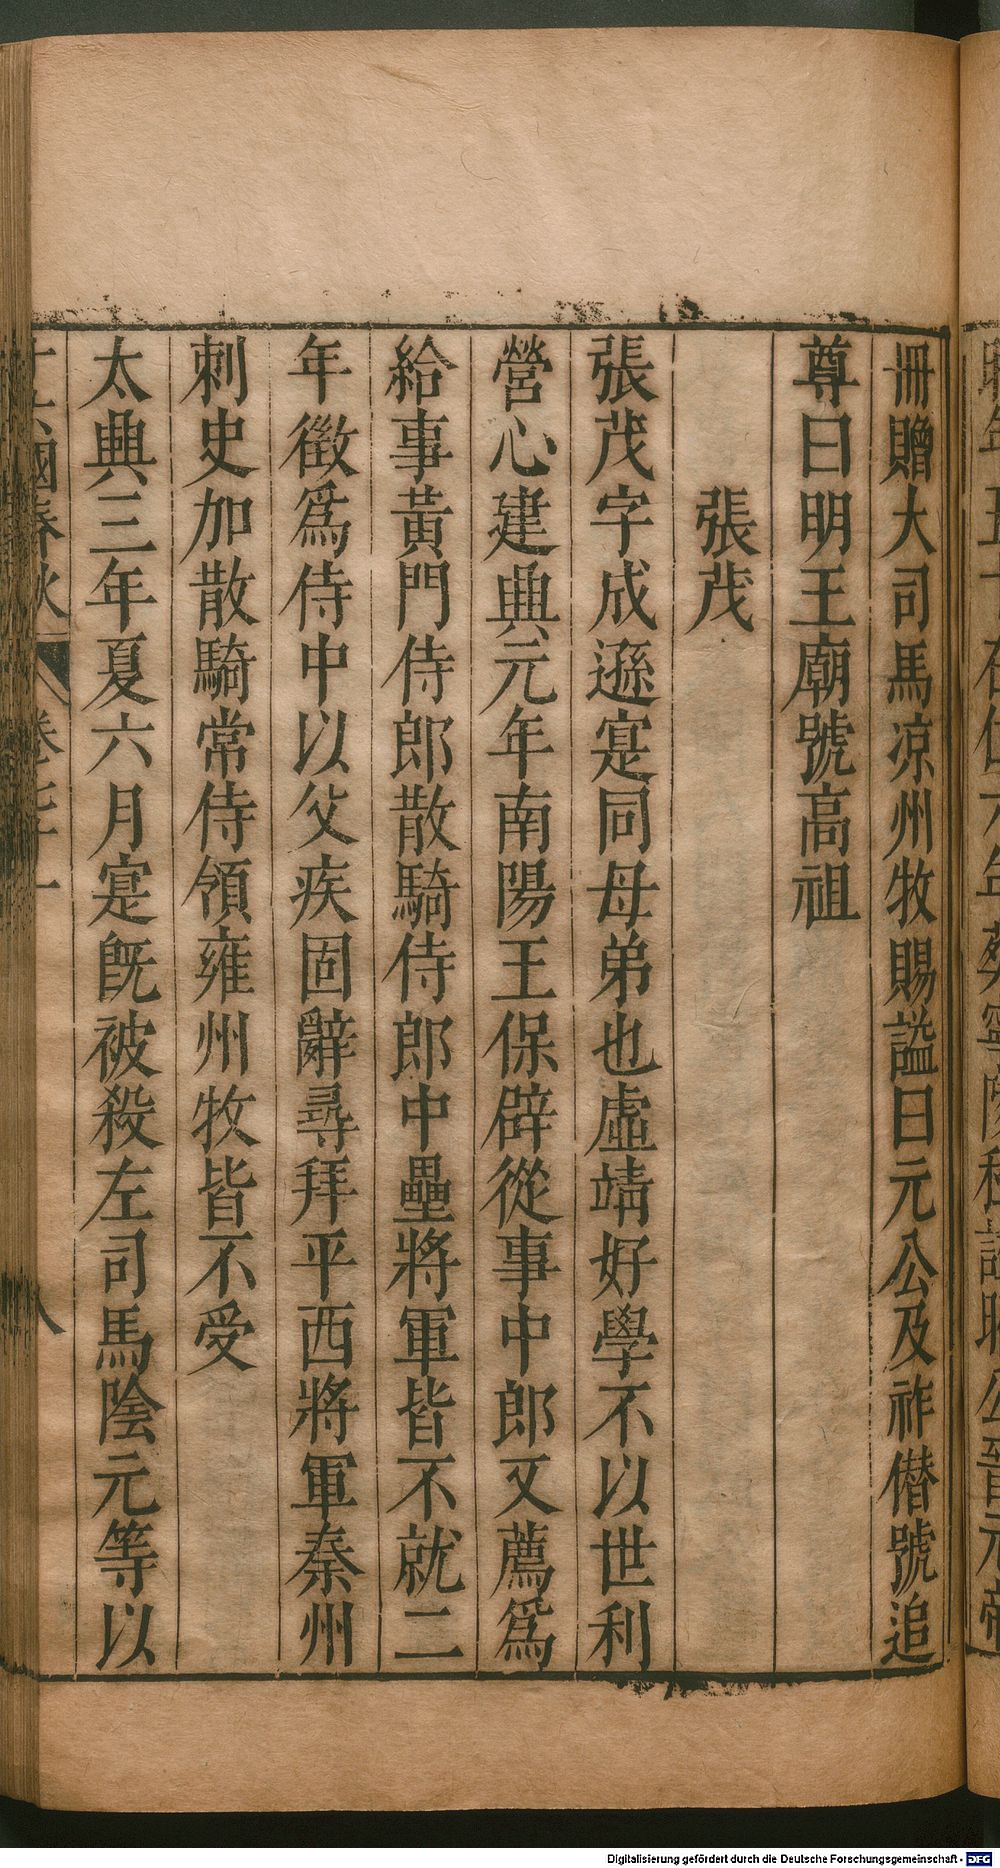 冊贈大司馬凉州牧賜謚曰元公及祚僭號追
尊曰明王廟號高祖
張茂
張茂字成遜寔同母弟也虛靖好學不以世利
營心建興元年南陽王保辟從事中郎又薦爲
給事黃門侍郎散騎侍郎中壘將軍皆不就二
年徵爲侍中以父疾固辭尋拜平西將軍秦州
刺史加散騎常侍領雍州牧皆不受
太興三年夏六月寔旣被殺左司馬陰元等以
國春秋
八
Digitalisierung gefördert durch die Deutsche Forschungsgemeinschaft - DFG